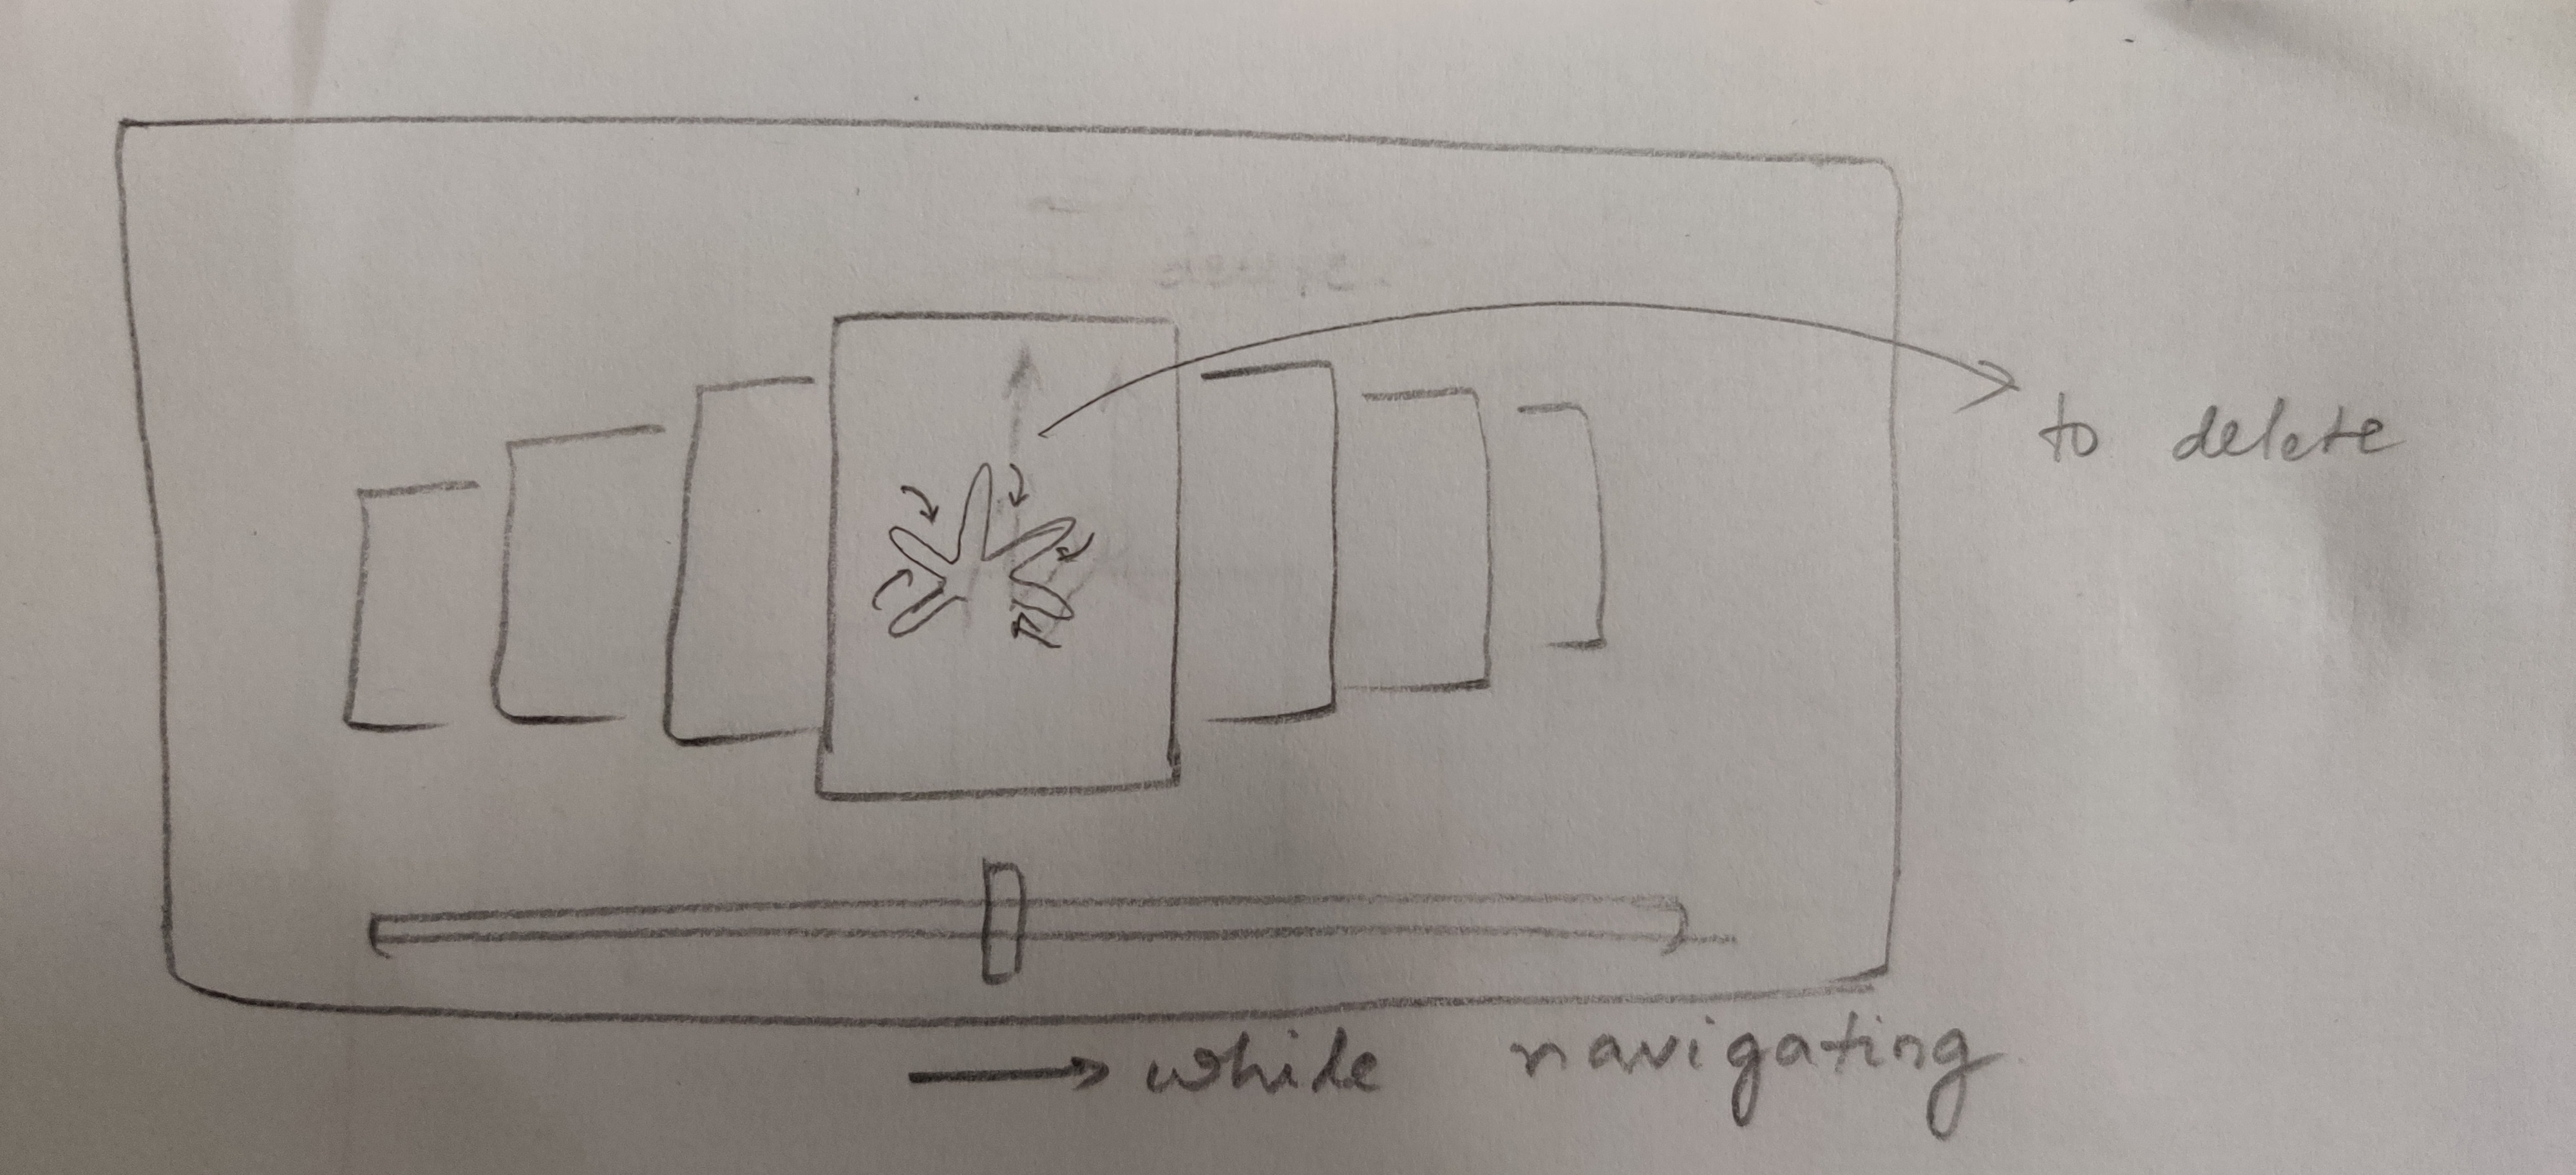 to delete
while navigating